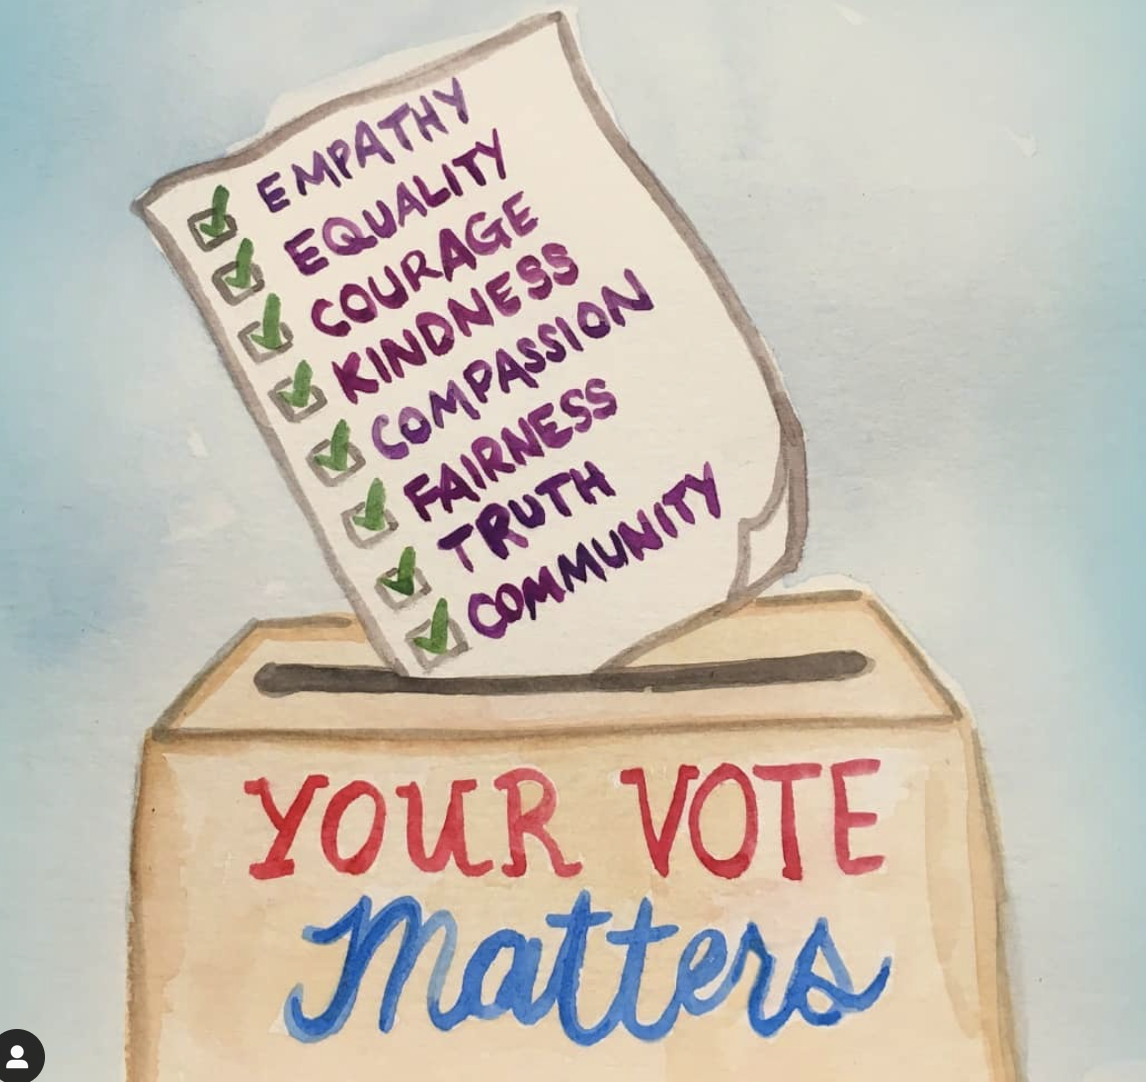 EMPATHY
EQUALITY
COURAGE
KINDNESS
COMPASSION
FAIRNESS
TRUTH
COMMUNITY
YOUR VOTE
Matters